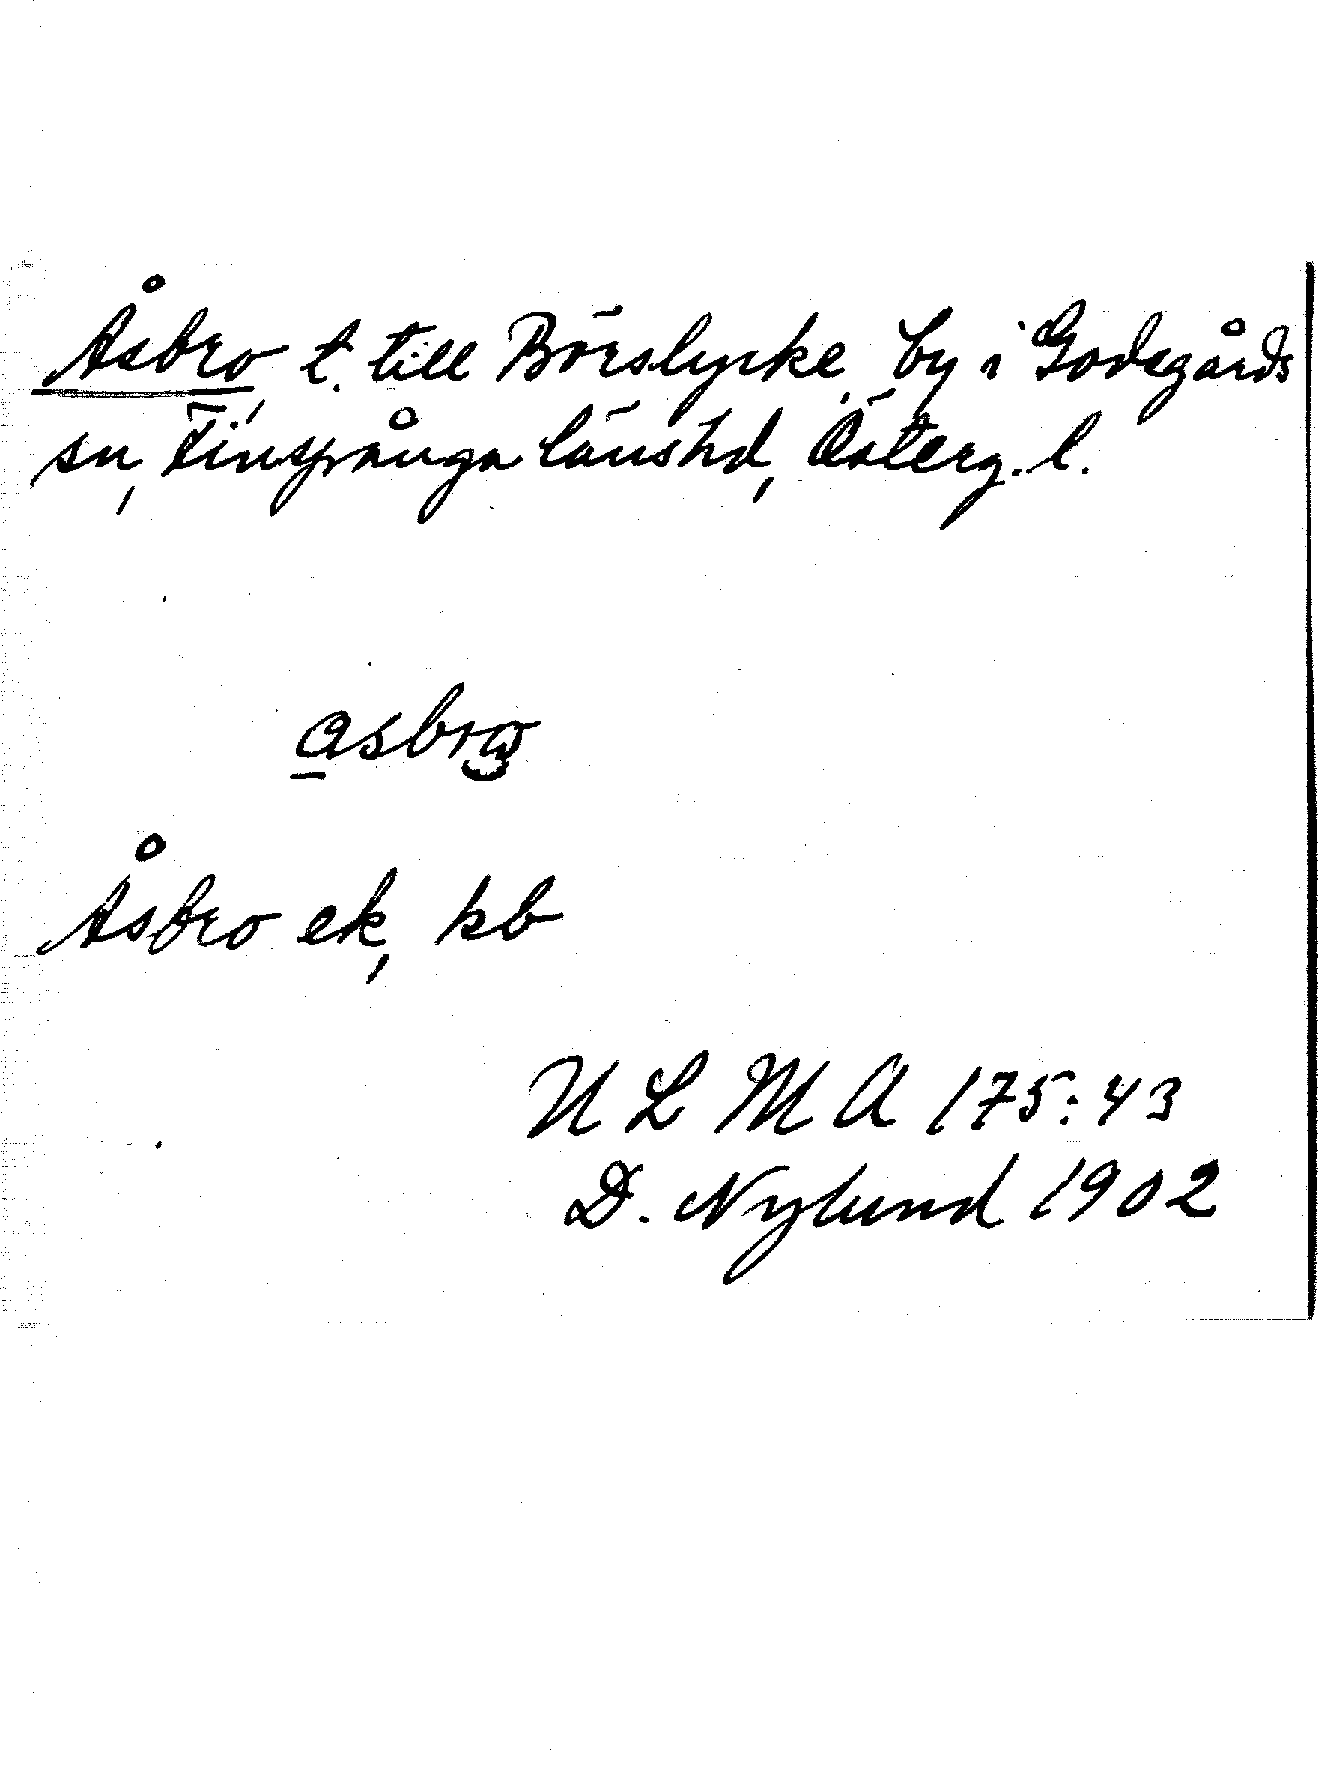 Åsbro, t. till Börslycke by i Godegårds
sn, Finspånga länshd, Österg. l.
Åsbro ek, kb
ULMA 175:43
D. Nylund 1902